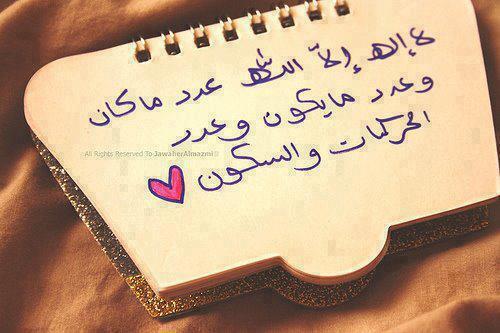 لا إله إلاّ اللّه عدد ماكان
وعدد مايكون وعدد
الحركات والسكون
All Rights Reserved To JawaherAlmazmi©